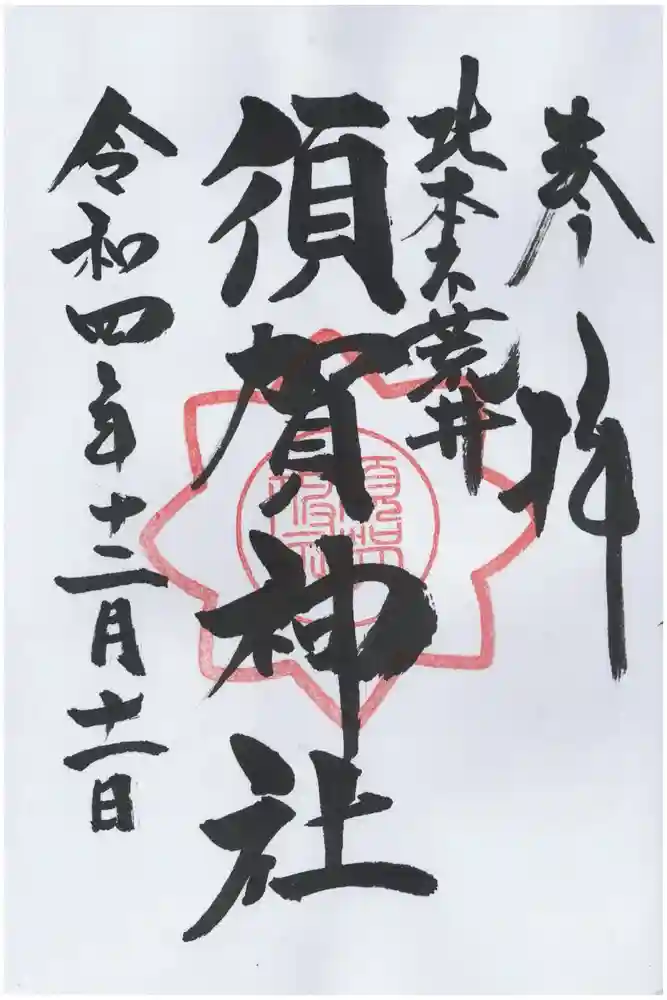 参拝
北本市荒井
須賀神社
令和四年十二月十一日